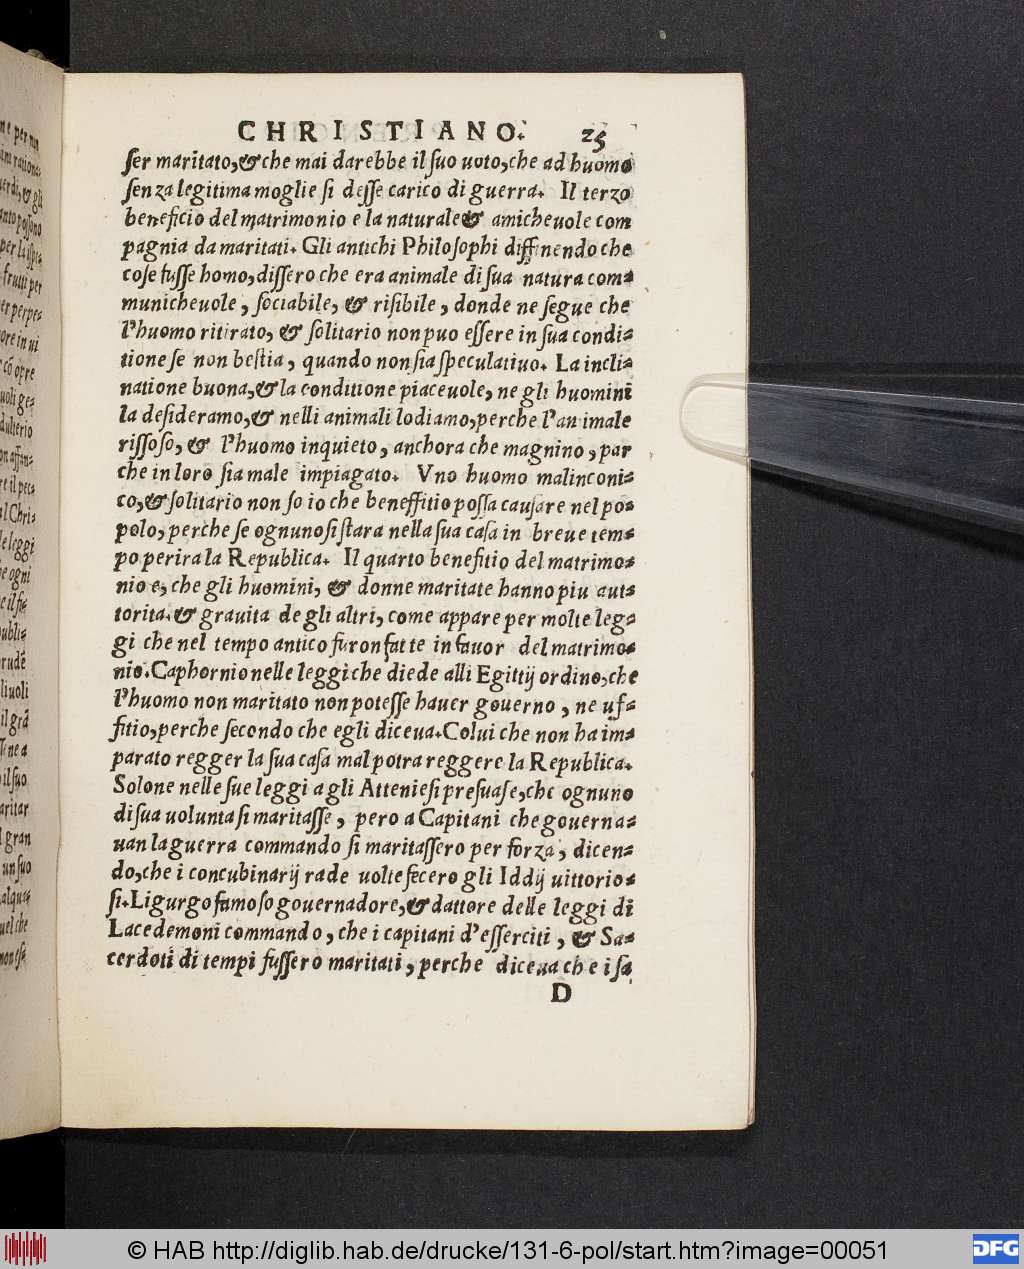 CHRISTIANO. 25
ſer maritato,& che mai darebbe il ſuo uoto,che ad huomo
ſenza legitima moglie ſi deſſe carico di guerra. Il terzo
beneficio del matrimonio e la naturale & amicheuole com
pagnia da maritati. Gli antichi Philoſophi diffinendo che
coſe fuſſe homo,diſſero che era animale di ſua natura com=
municheuole, ſociabile, & riſibile, donde ne ſegue che
l'huomo ritirato, & ſolitario non puo eſſere in ſua condi=
tione ſe non beſtia, quando non ſia ſpeculatiuo. La incli=
natione buona,& la conditione piaceuole, ne gli huomini
la deſideramo,& nelli animali lodiamo,perche l'animale
riſſoſo, & l'huomo inquieto, anchora che magnino, par
che in loro ſia male impiagato. Vno huomo malinconi=
co,& ſolitario non ſo io che beneffitio poſſa cauſare nel po=
polo, perche ſe ognuno ſi ſtara nella ſua caſa in breue tem=
po perira la Republica. Il quarto benefitio del matrimo=
nio e, che gli huomini, & donne maritate hanno piu aut=
torita & grauita de gli altri, come appare per molte leg=
gi che nel tempo antico furon fatte in fauor del matrimo=
nio. Caphornio nelle leggi che diede alli Egittij ordino,che
l'huomo non maritato non poteſſe hauer gouerno, ne uf=
fitio,perche ſecondo che egli diceua. Colui che non ha im=
parato regger la ſua caſa mal potra reggere la Republica.
Solone nelle ſue leggi a gli Attenieſi preſuaſe,che ognuno
di ſua uolunta ſi maritaſſe, pero a Capitani che gouerna=
uan la guerra commando ſi maritaſſero per forza, dicen=
do,che i concubinarij rade uolte fecero gli Iddij uittorio=
ſi. Ligurgo famoſo gouernadore,& dattore delle leggi di
Lacedemoni commando, che i capitani d'eſſerciti, & Sa=
cerdoti di tempi fuſſero maritati, perche diceua che i ſa
D
© HAB http://diglib.hab.de/drucke/131-6-pol/start.htm?image=00051
DFG